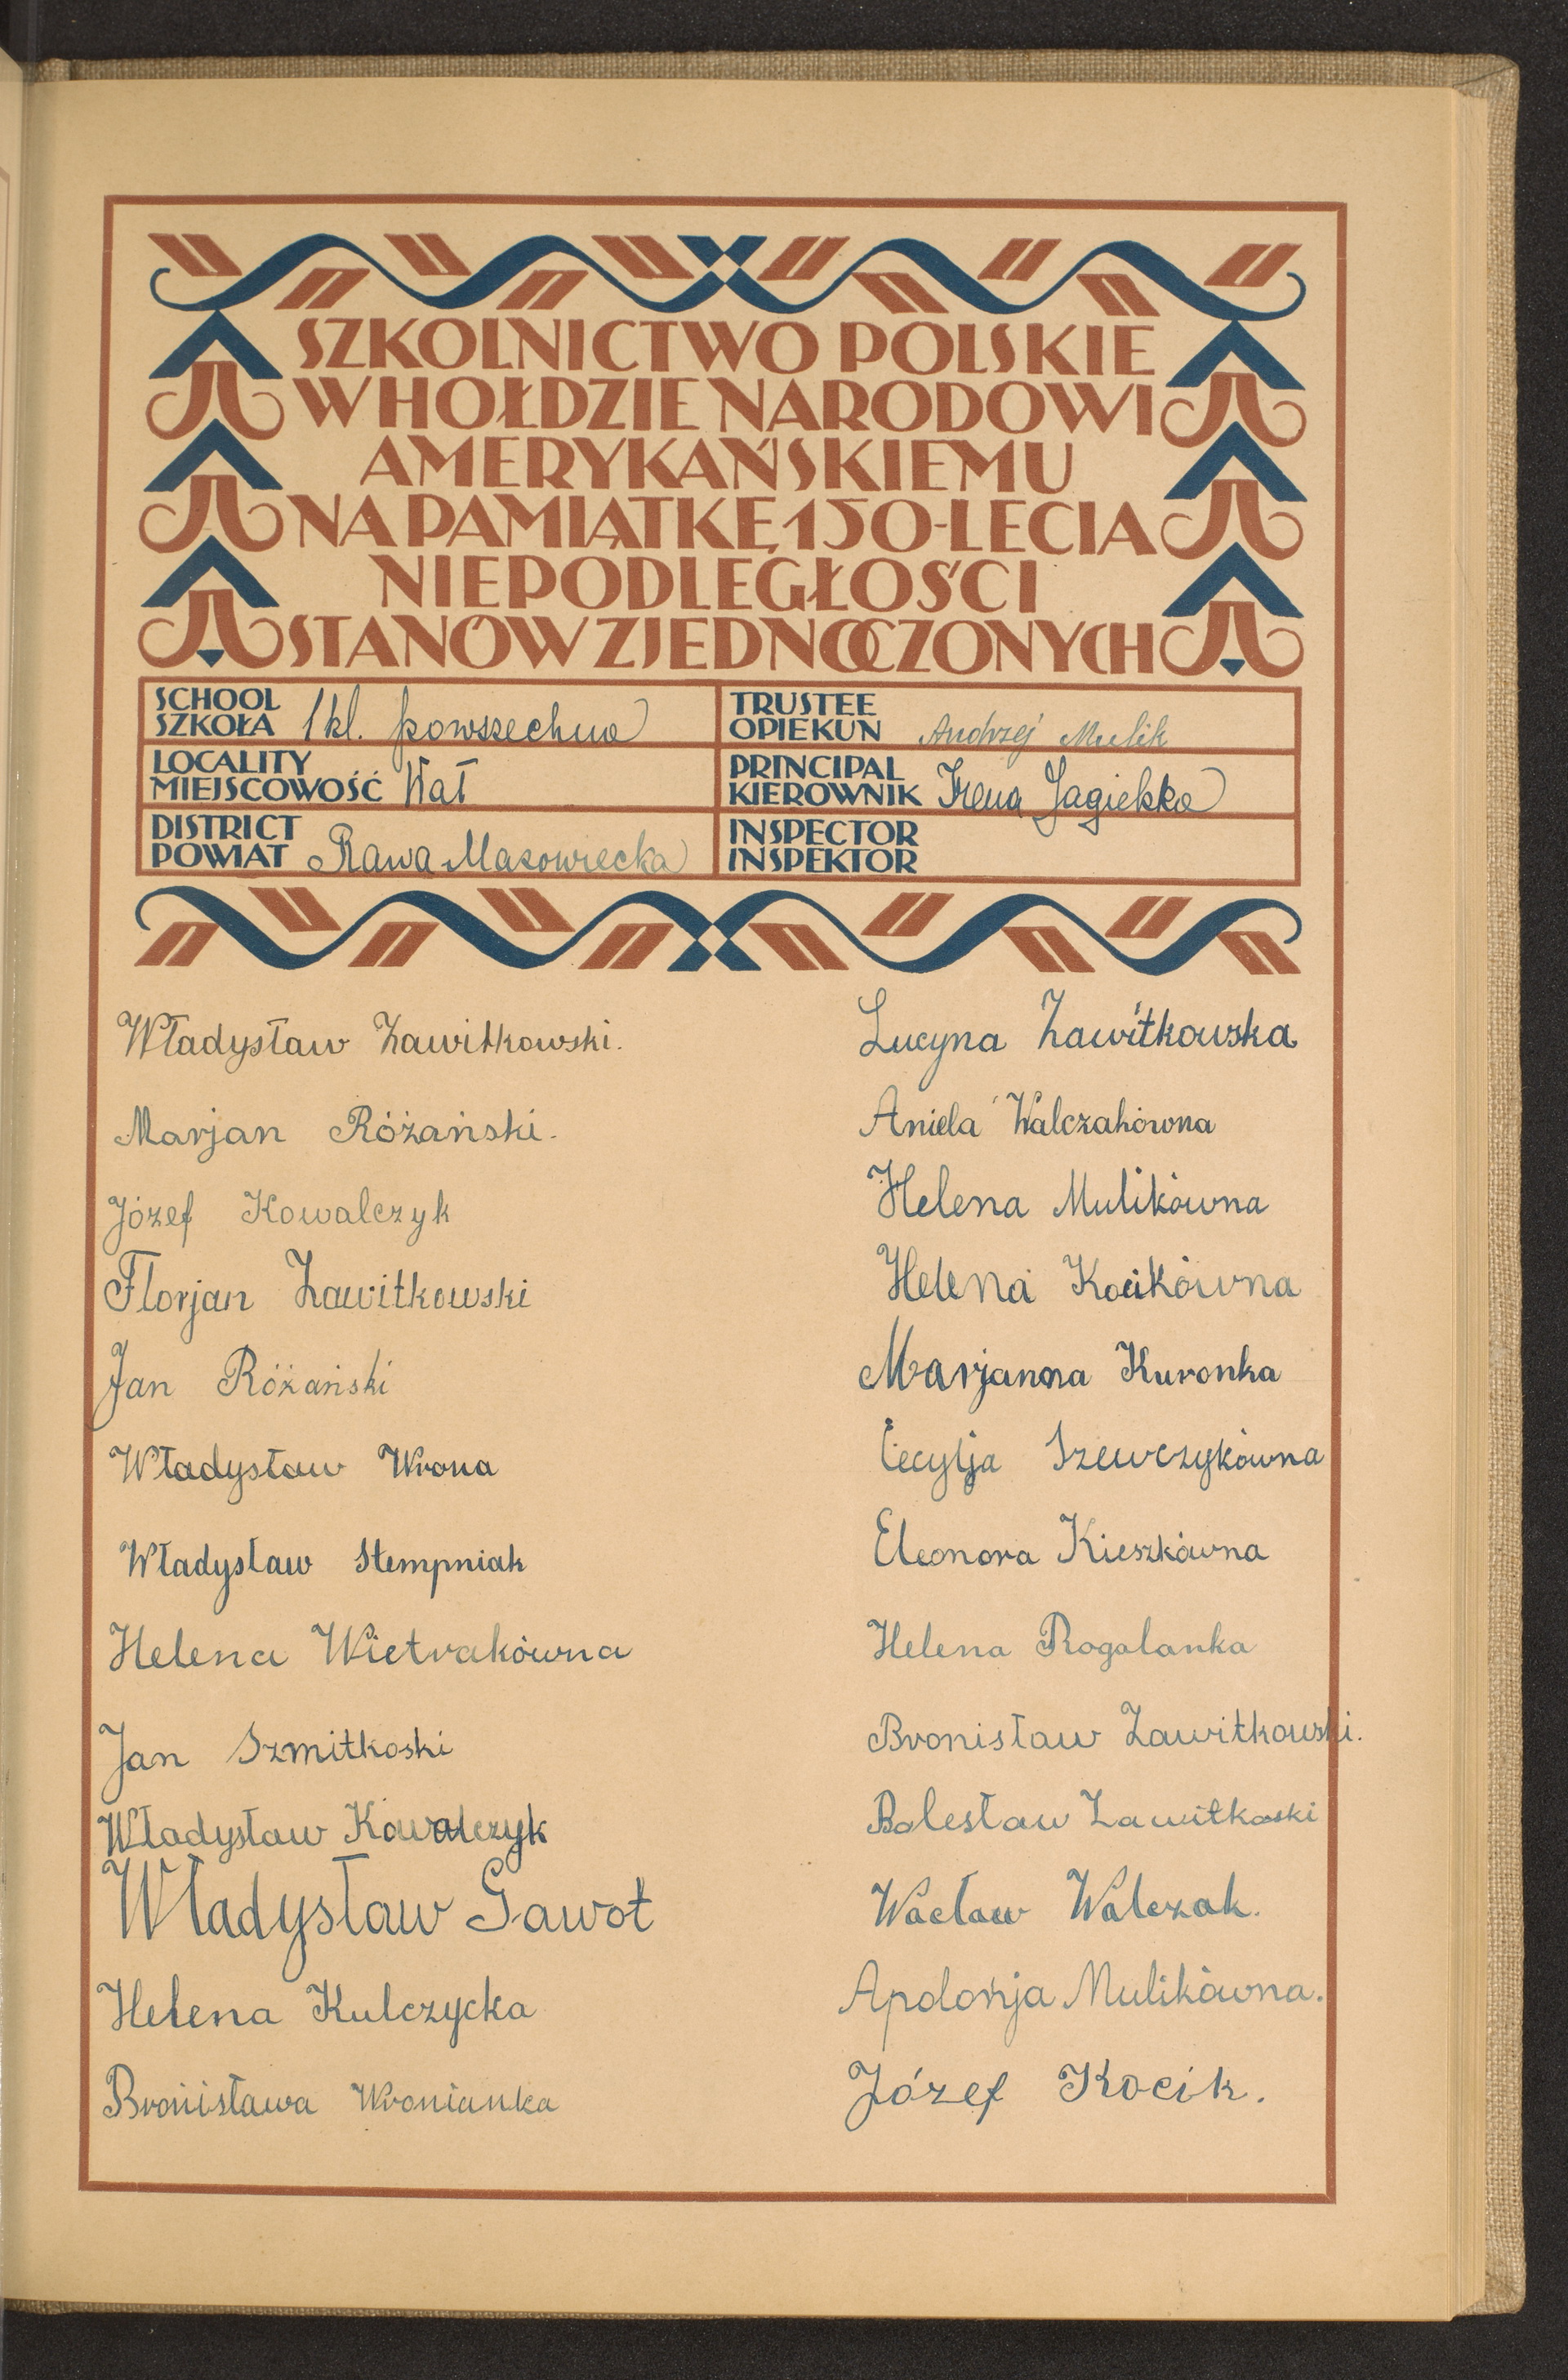 SZKOLNICTWO POLSKIE
W HOŁDZIE NARODOWI
AMERYKAŃSKIEMU
NA PAMIĄTKĘ 150-LECIA
NIEPODLEGŁOŚCI
STANÓW ZJEDNOCZONYCH
SCHOOL
SZKOŁA 1 kl. powszechna
TRUSTEE
OPIEKUN Andrzej Mulik
LOCALITY
MIEJSCOWOŚĆ Wał
PRINCIPAL
KIEROWNIK Irena Jagiełło
DISTRICT
POWIAT Rawa Mazowiecka
INSPECTOR
INSPEKTOR
Władysław Zawitkowski.
Marjan Różański.
Józef Kowalczyk
Florjan Zawitkowski
Jan Różański
Władysław Wrona
Władysław Stempniak
Helena Wietrakówna
Jan Szmitkoski
Władysław Kowalczyk
Władysław Gawot
Helena Kulczycka
Brońisława Wronianka
Lucyna Zawitkowska
Aniela Walczakówna
Helena Mulikówna
Helena Kocikówna
Marjanna Kuronka
Cecylja Szewczykówna
Eleonora Kieszkówna
Helena Rogalanka
Bronisław Zawitkowski.
Bolesław Zawitkoski
Wacław Walczak.
Apolońja Mulikówna.
Józef Kocik.